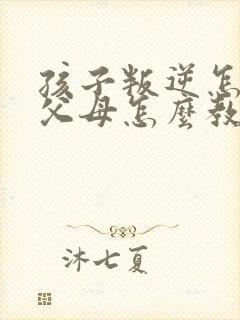 孩子叛逆怎
父母怎麼教
沐七夏